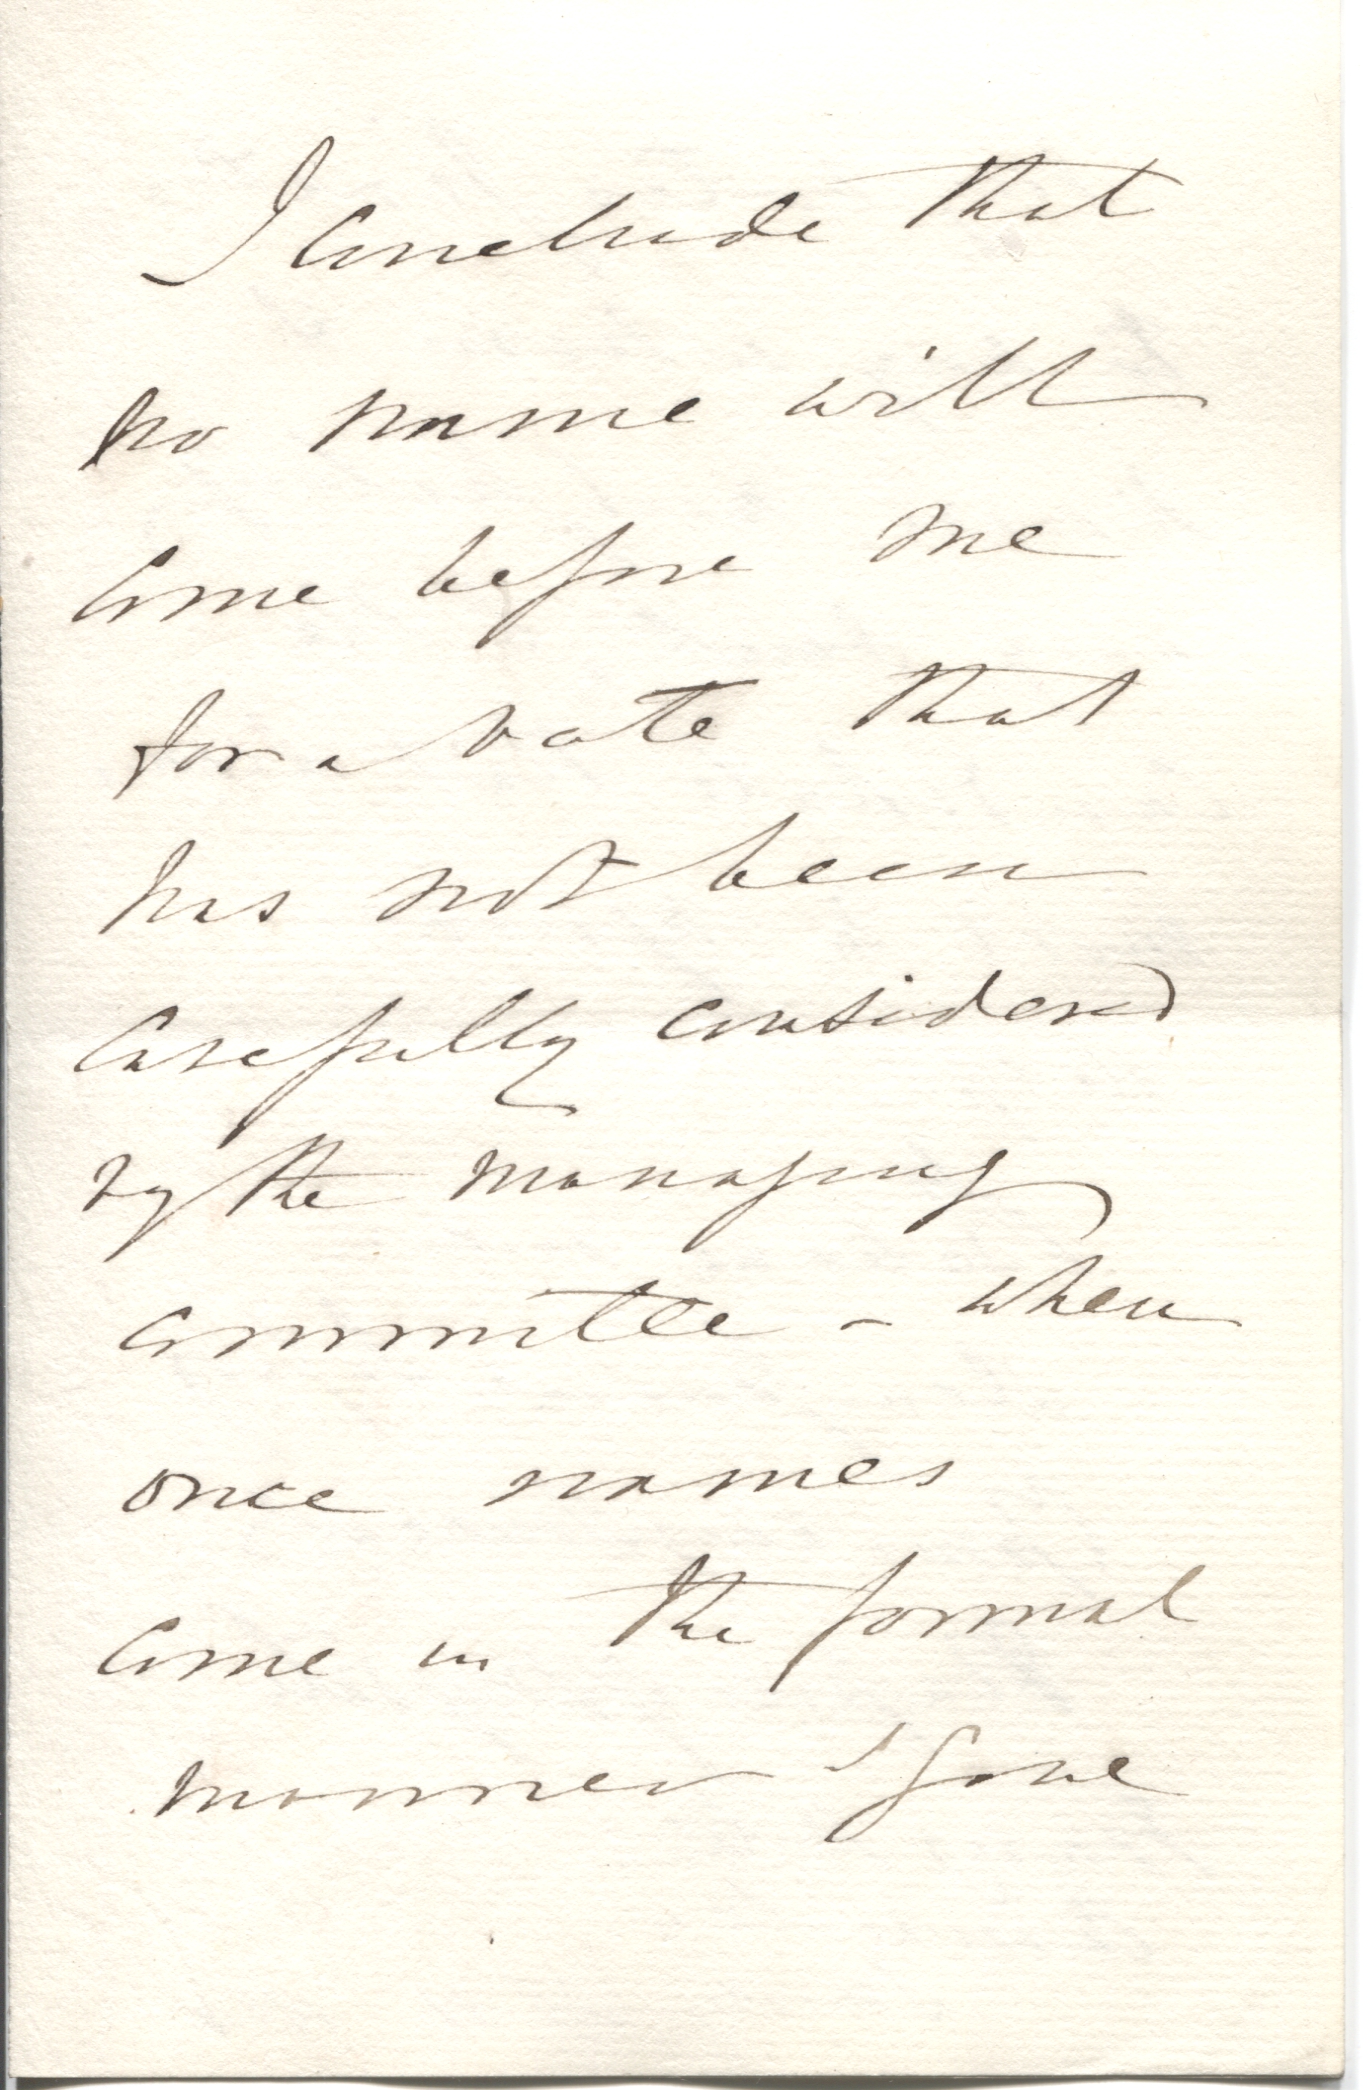 I conclude that
no name will
come before me
for a vote that
has not been
carefully considered
by the managing
committee – when
once names
come in the formal
manner I